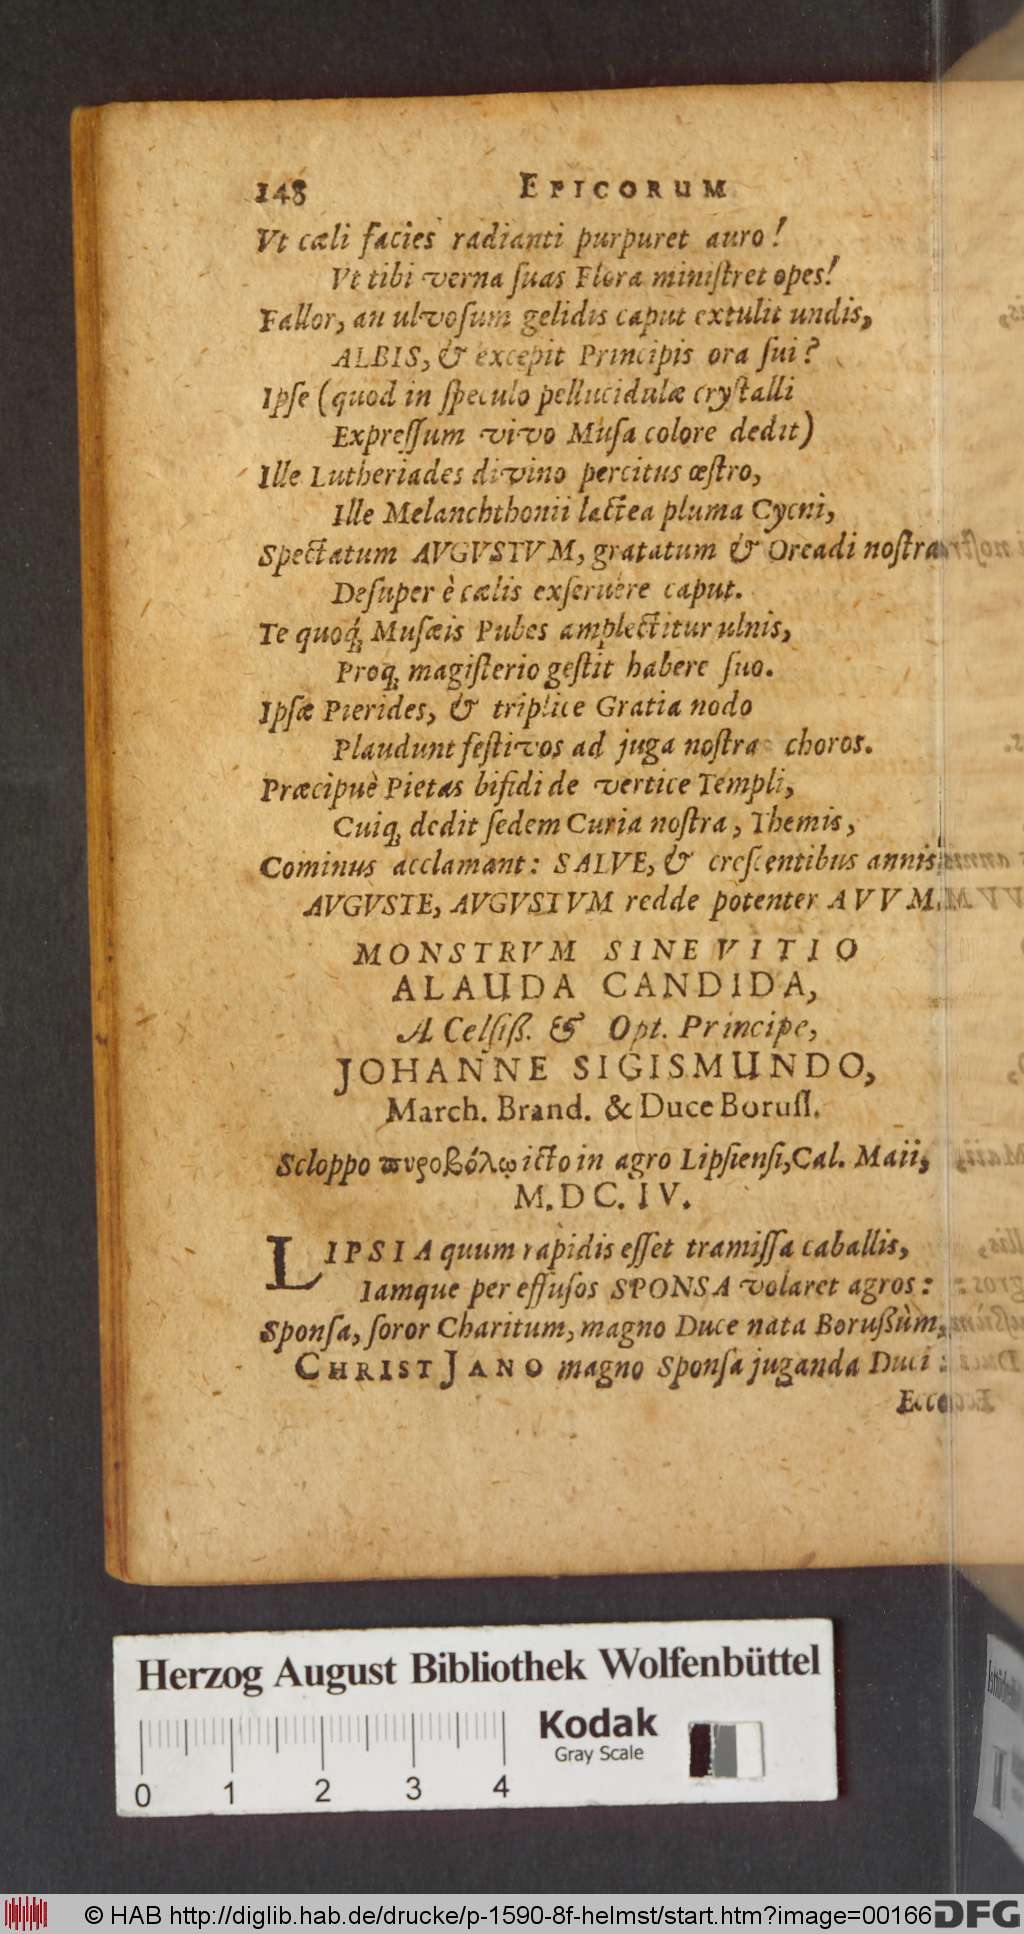 148 EPICORUM
Vt cæli facies radianti purpuret auro!
Vt tibi verna ſuas Flora miniſtret opes!
Fallor, an ulvoſum gelidis caput extulit undis,
ALBIS, & excepit Principis ora ſui?
Ipſe (quod in ſpeculo pellucidulæ cryſtalli
Expreſſum vivo Muſa colore dedit)
Ille Lutheriades divino percitus œſtro,
Ille Melanchthonii lactea pluma Cycni,
Spectatum AVGVSTVM, gratatum & Oreadi noſtra
Deſuper è cælis exſeruere caput.
Te quoq́; Muſæis Pubes amplectitur ulnis,
Proq; magiſterio geſtit habere ſuo.
Ipſæ Pierides, & triplice Gratia nodo
Plaudunt feſtivos ad juga noſtra choros.
Præcipuè Pietas bifidi de vertice Templi,
Cuiq; dedit ſedem Curia noſtra, Themis,
Cominus acclamant: SALVE, & creſcentibus annis
AVGVSTE, AVGVSTVM redde potenter AVVM.
MONSTRVM SINE VITIO
ALAUDA CANDIDA,
A Celſiß. & Opt. Principe,
JOHANNE SIGISMUNDO,
March. Brand. & Duce Boruſſ.
Scloppo πυροβόλῳ icto in agro Lipſienſi, Cal. Maii,
M.DC.IV.
LIPSIA quum rapidis eſſet tramiſſa caballis,
Iamque per effuſos SPONSA volaret agros:
Sponſa, ſoror Charitum, magno Duce nata Borußûm,
CHRISTJANO magno Sponſa juganda Duci:
Ecce
Herzog August Bibliothek Wolfenbüttel
Kodak
Gray Scale
0 1 2 3 4
© HAB http://diglib.hab.de/drucke/p-1590-8f-helmst/start.htm?image=00166
DFG